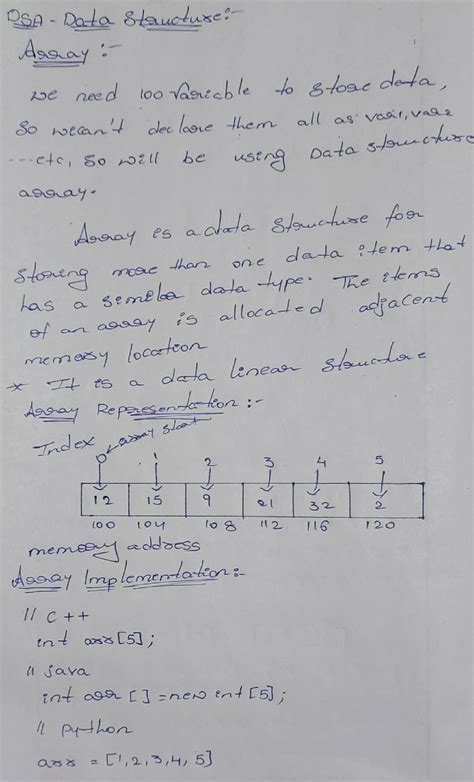 DSA - Data Structure:-
Array:-
we need 100 variable to store data,
So we can't declare them all as var1, var2
...etc, so will be using Data structure
array.
Array is a data structure for
storing more than one data item that
has a similar data type. The items
of an array is allocated adjacent
memory location
* It is a data linear structure
Array Representation:-
Index array start
0 1 2 3 4 5
12 15 9 21 32 2
100 104 108 112 116 120
memory address
Array Implementation:-
// C++
int arr[5];
// java
int arr []=new int[5];
// python
arr = [1,2,3,4,5]